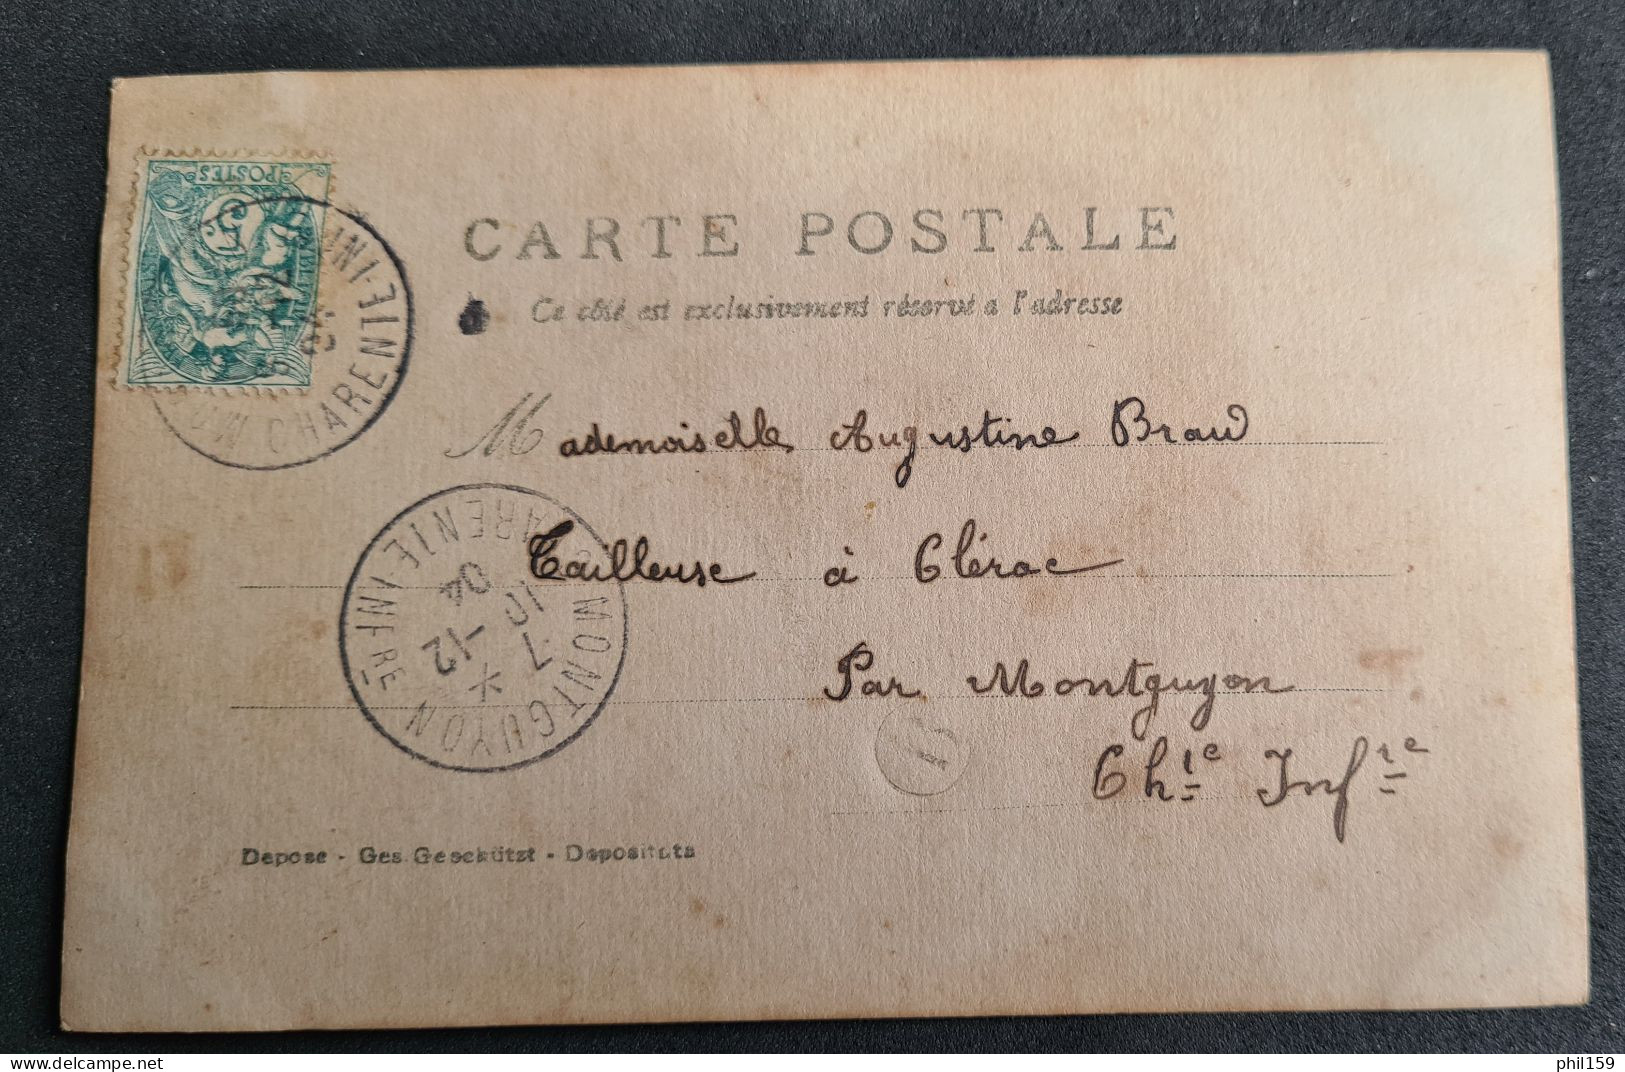 POSTES
5
CHARENTE-INF
CARTE POSTALE
Ce côté est exclusivement réservé a l'adresse
Mademoiselle Augustine Braud
Tailleuse à Clérac
Par Montguyon
Chte Infre
MONTGUYON
ARENTE INFRE
7 * -12
10
04
B
Depose - Ges. Geschützt - Deposituta
phil159